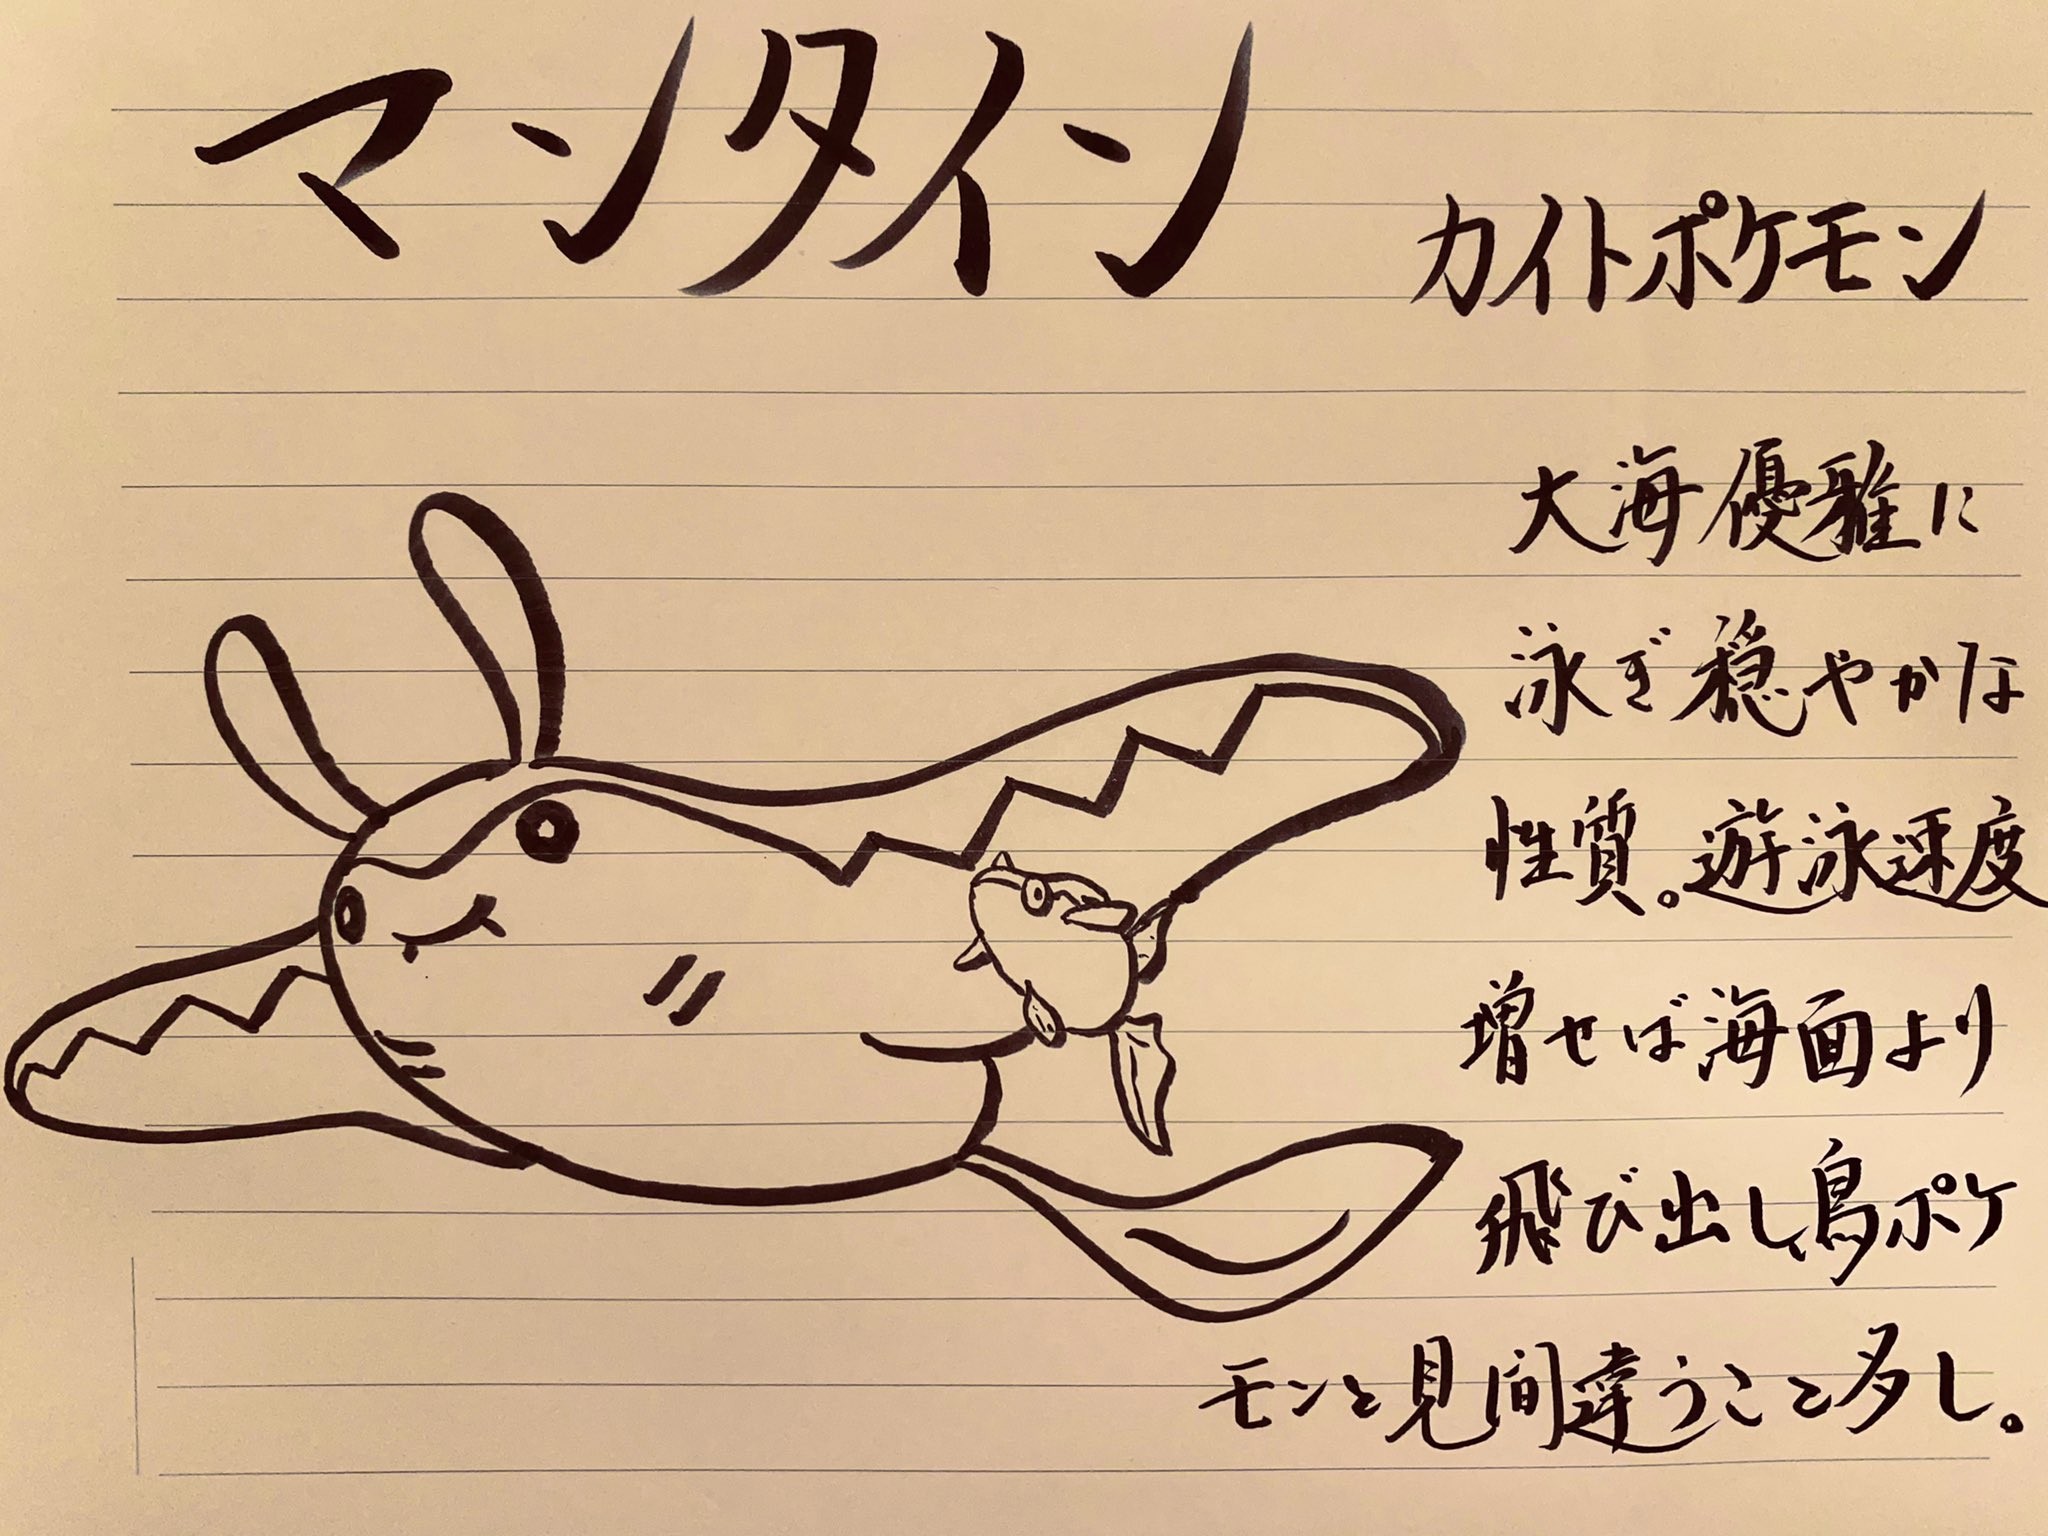 マンタイン
カイトポケモン
大海優雅に
泳ぎ穏やかな
性質。遊泳速度
増せば海面より
飛び出し、鳥ポケ
モンと見間違うこと多し。